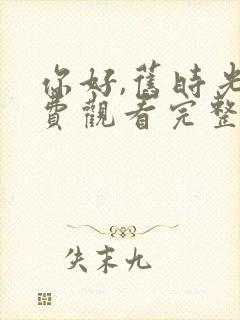 你好,舊時光
費觀看完整
失末九